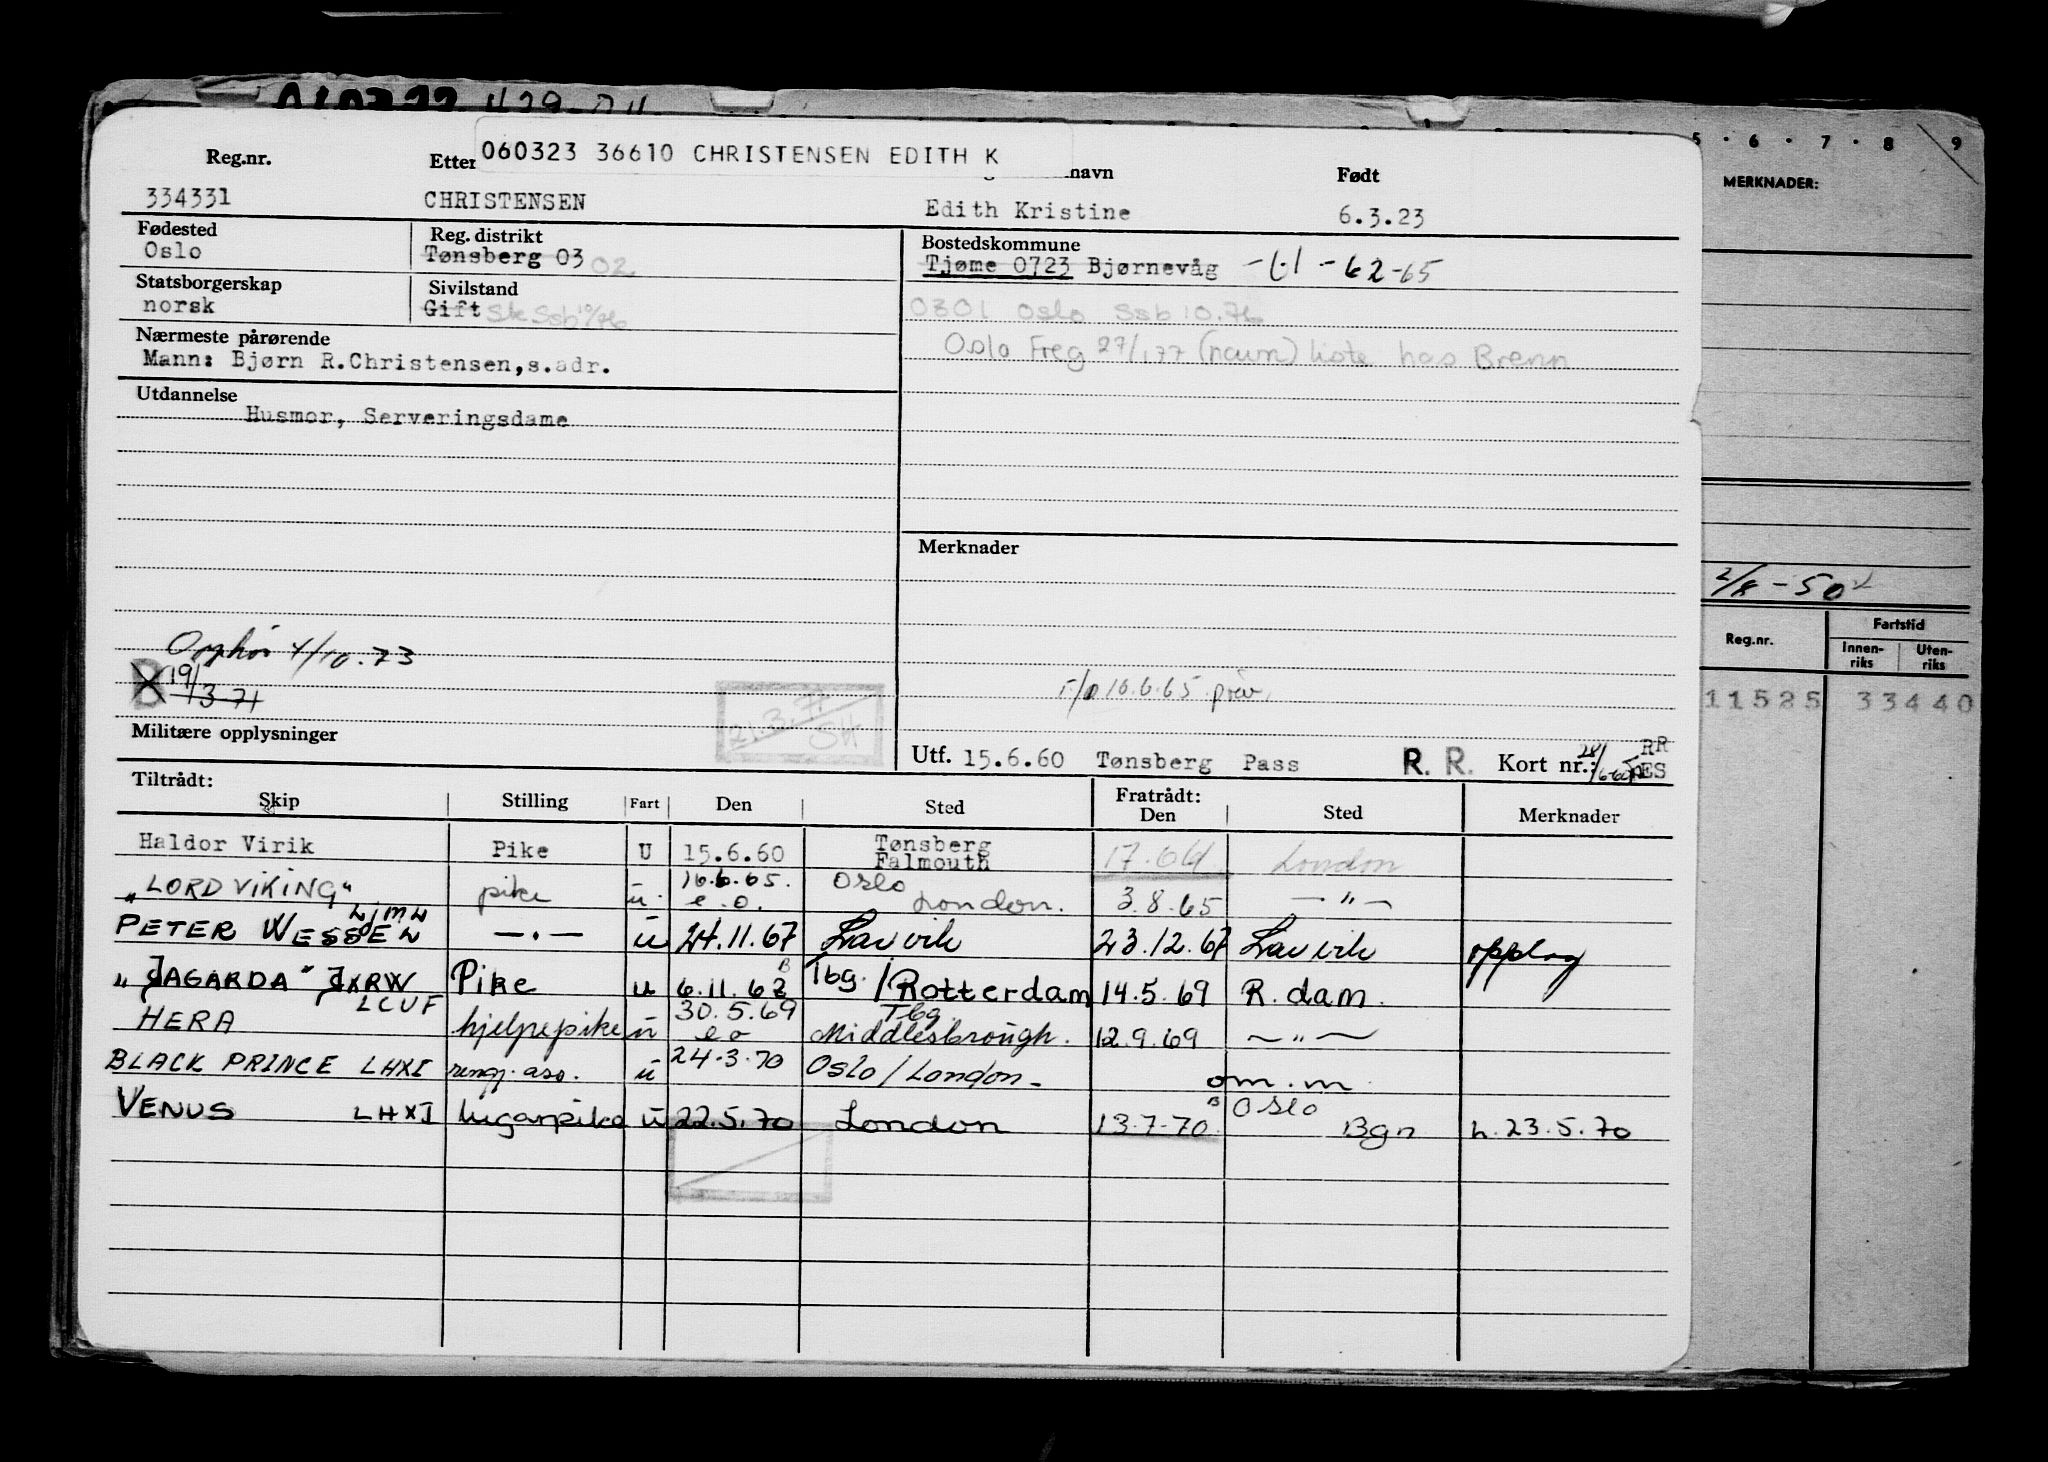 060323 36610 CHRISTENSEN EDITH K
Reg.nr. Etter navn Født
334331 CHRISTENSEN Edith Kristine 6.3.23
Fødested Reg. distrikt Bostedskommune
Oslo Tønsberg 03 02 Tjøme 0723 Bjørnevåg
Statsborgerskap Sivilstand
norsk Gift
0301 Oslo Ssb 10.76
Nærmeste pårørende
Mann: Bjørn R.Christensen,s.adr.
Oslo Freg 27/1 77 (navn) liste hos Brenn
Utdannelse
Husmor, Serveringsdame
Merknader
Opphør 4/10.73
19/3 71
21.3.71
SH
16.6.65 prøv.
Militære opplysninger
Utf. 15.6.60 Tønsberg Pass R. R. Kort nr.: RR ES
Tiltrådt: Fratrådt:
Skip Stilling Fart Den Sted Den Sted Merknader
Haldor Virik Pike U 15.6.60 Tønsberg Falmouth London
"LORD VIKING" pike u 16.6.65. e.o. Oslo London. 3.8.65 — " —
PETER WESSEL LJML — " — u 24.11.67 Larvik 23.12.67 Larvik opplag
"JAGARDA" JXRW Pike u Tbg. / Rotterdam 14.5.69 R.dam.
HERA LCUF hjelpepike u 30.5.69 eo Tbg. Middlesbrough. 12.9.69 — " —
BLACK PRINCE LHXI rengj. ass. u 24-3-70 Oslo / London - om.m.
VENUS LHXI lugarpike u 22.5.70 London 13.7.70 Oslo Bgn L. 23.5.70
5 · 6 · 7 · 8 9
MERKNADER:
2/8 - 50
Reg.nr. Fartstid
Innen-riks Uten-riks
11525 33440